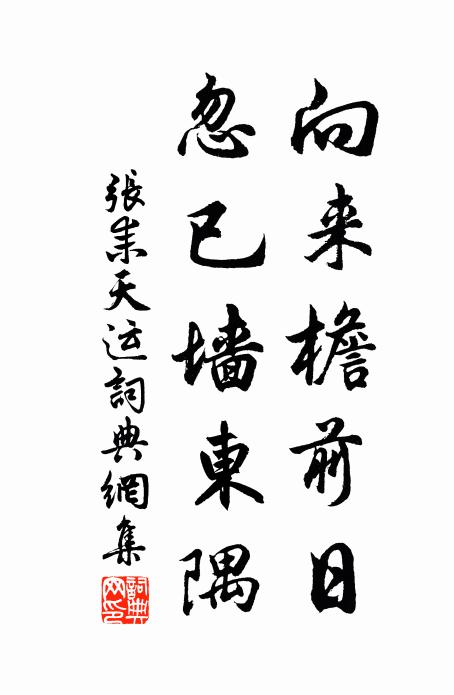 向来檐前日
忽已墙東隅
張耒天运詞典網集
詞典网印